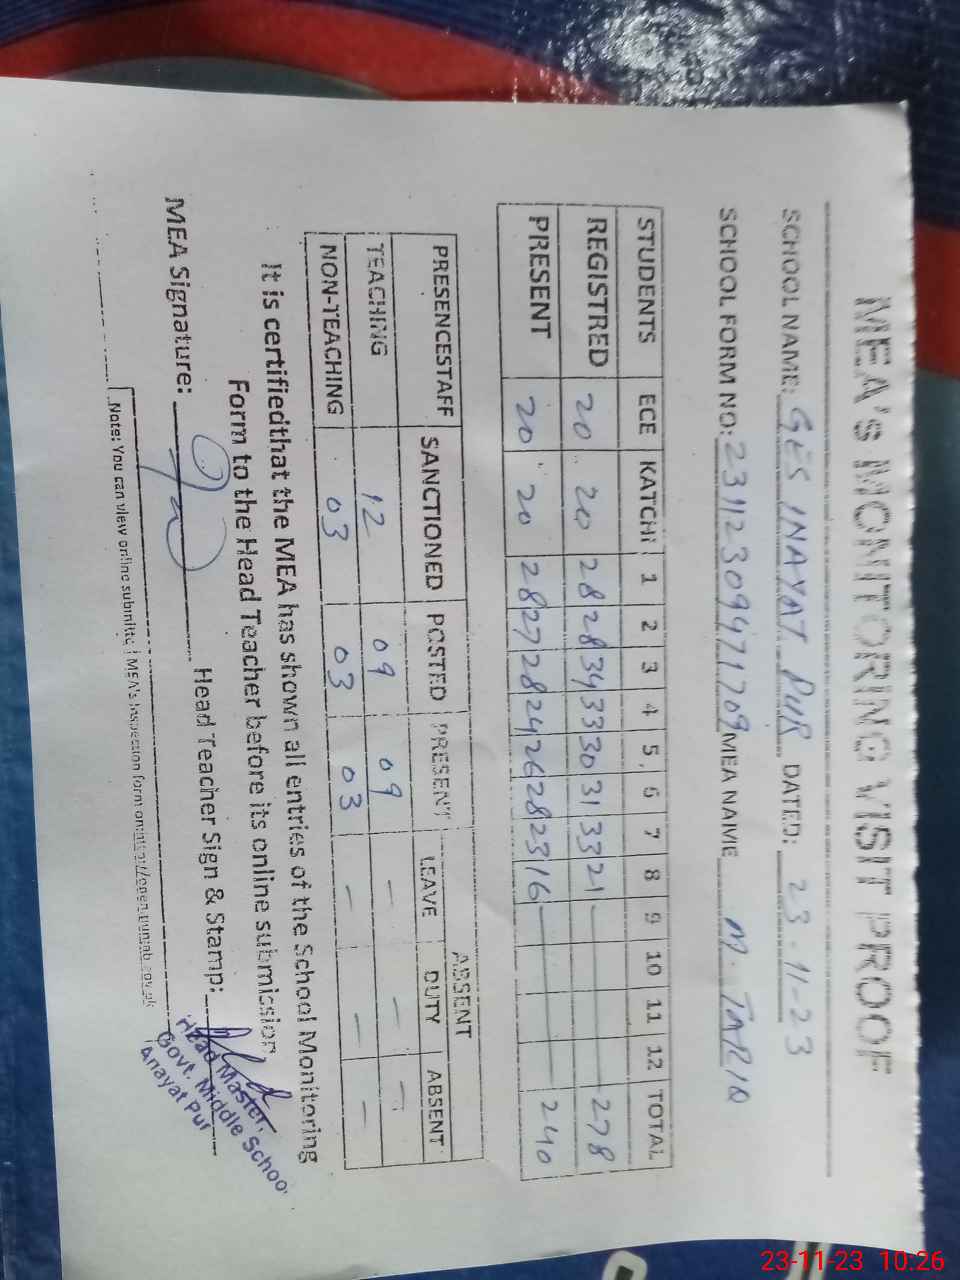 MEA's MONITORING VISIT PROOF
SCHOOL NAME: GES INAYAT PUR DATED: 23-11-23
SCHOOL FORM NO: 23112309471709 MEA NAME M. TARIQ
STUDENTS ECE KATCHI 1 2 3 4 5 6 7 8 9 10 11 12 TOTAL
REGISTRED 20 20 28 28 34 33 30 31 33 21 — 278
PRESENT 20 20 28 27 28 24 26 28 23 16 — 240
PRESENCESTAFF SANCTIONED POSTED PRESENT ABSENT
LEAVE DUTY ABSENT
TEACHING 12 09 09 — — —
NON-TEACHING 03 03 03 — — —
It is certifiedthat the MEA has shown all entries of the School Monitoring
Form to the Head Teacher before its online submission.
MEA Signature: Head Teacher Sign & Stamp:
Head Master,
Govt. Middle School
Anayat Pur
Note: You can view online submitted MEA's Inspection form on:https://open.punjab.gov.pk
23-11-23 10:26